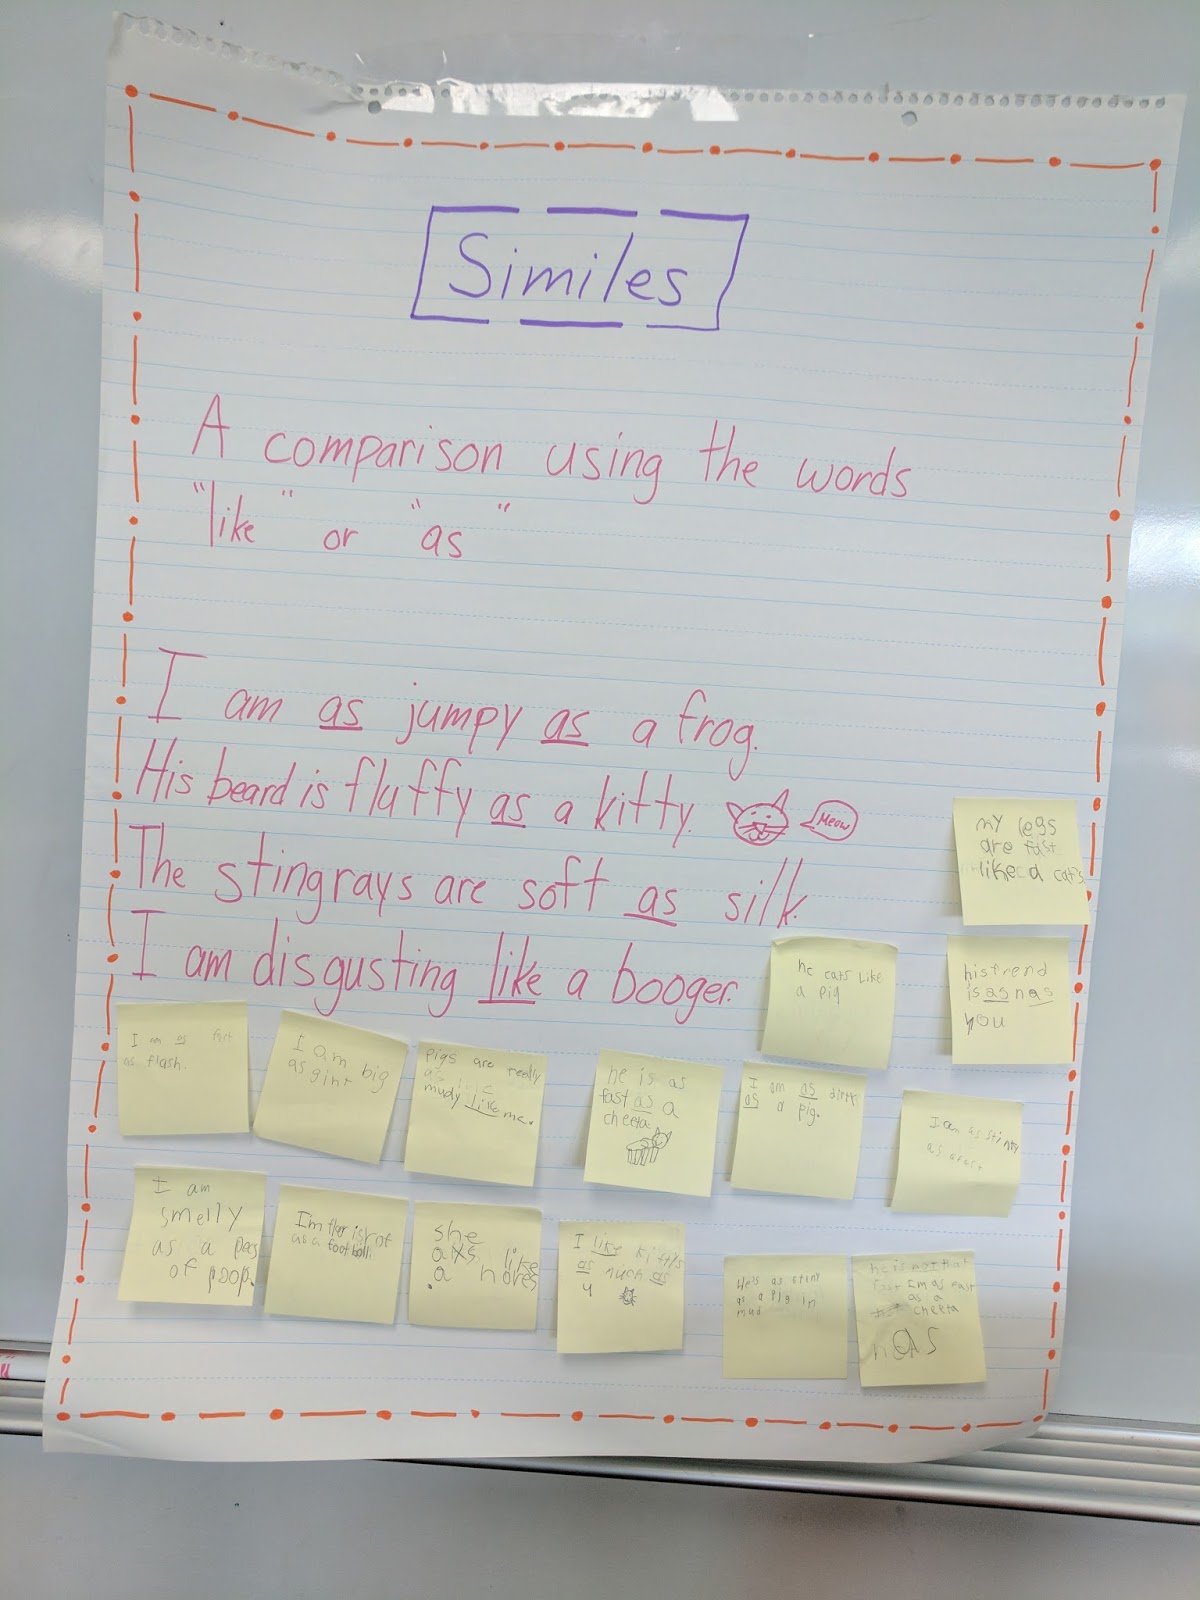 Similes
A comparison using the words
"like" or "as"
I am as jumpy as a frog.
His beard is fluffy as a kitty.
Meow
The stingrays are soft as silk.
I am disgusting like a booger.
my legs
are fast
like a cat's
he eats like
a pig
his frend
is as n as
you
I am as
as flash.
I am big
as gint
Pigs are really
mudy like me.
he is as
fast as a
cheeta
I am as dirty
as a pig.
I am as stinky
as
I am
smelly
as a
of poop.
I'm
as a football.
she
like
a
I like kittys
as much as
u
He is as stiny
as a pig in
mud
he is not that
fast I'm as fast
as a
cheeta